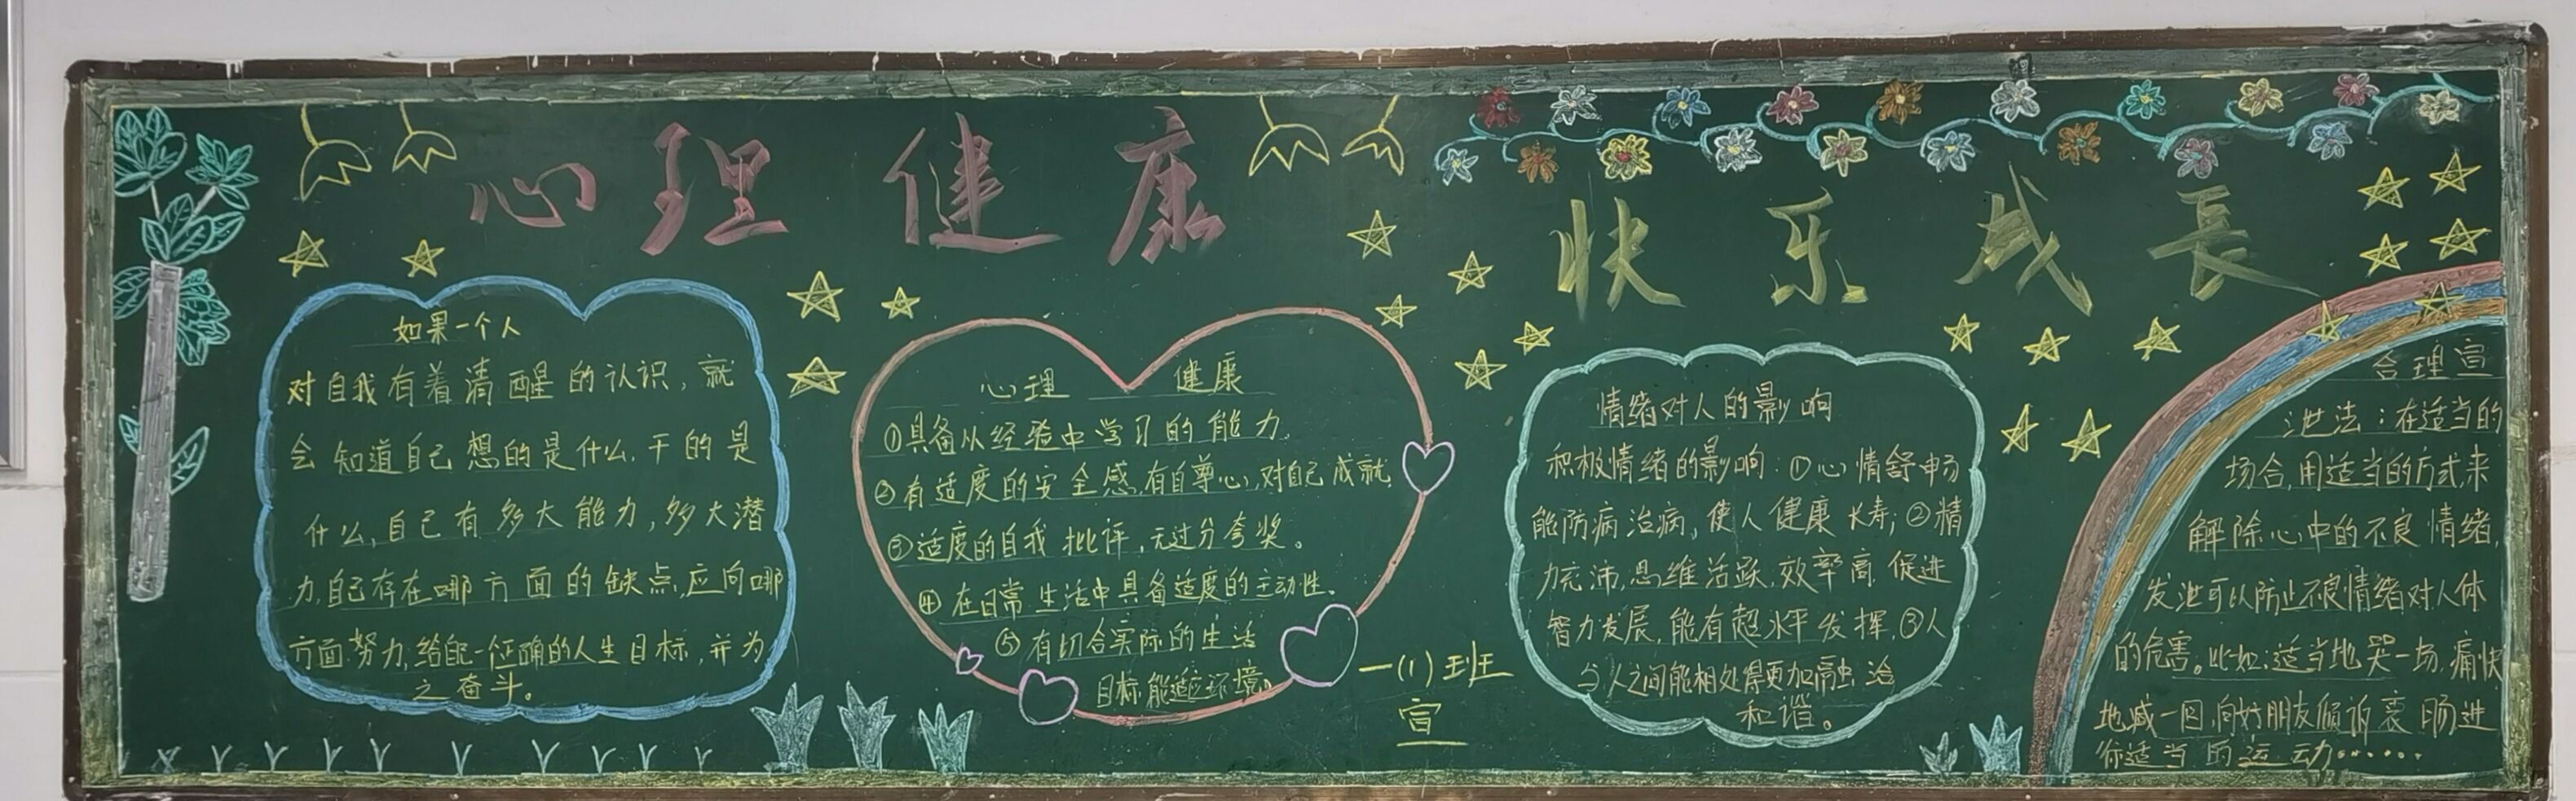 心理健康
快乐成长
如果一个人
对自我有着清醒的认识，就
会知道自己想的是什么，干的是
什么，自己有多大能力，多大潜
力，自己存在哪方面的缺点，应向哪
方面努力，给自己一个正确的人生目标，并为
之奋斗。
心理 健康
①具备从经验中学习的能力，
②有适度的安全感，有自尊心，对自己成就
③适度的自我批评，无过分夸奖。
④在日常生活中具备适度的主动性。
⑤有切合实际的生活
目标，能适应环境。
一(1)班
宣
情绪对人的影响
积极情绪的影响：①心情舒畅
能防病治病，使人健康长寿；②精
力充沛，思维活跃，效率高，促进
智力发展，能有超水平发挥，③人
与人之间能相处得更加融洽
和谐。
合理宣
泄法：在适当的
场合，用适当的方式，来
解除心中的不良情绪，
发泄可以防止不良情绪对人体
的危害。比如：适当地哭一场，痛快
地喊一回，向好朋友倾诉衷肠，进
你适当的运动……